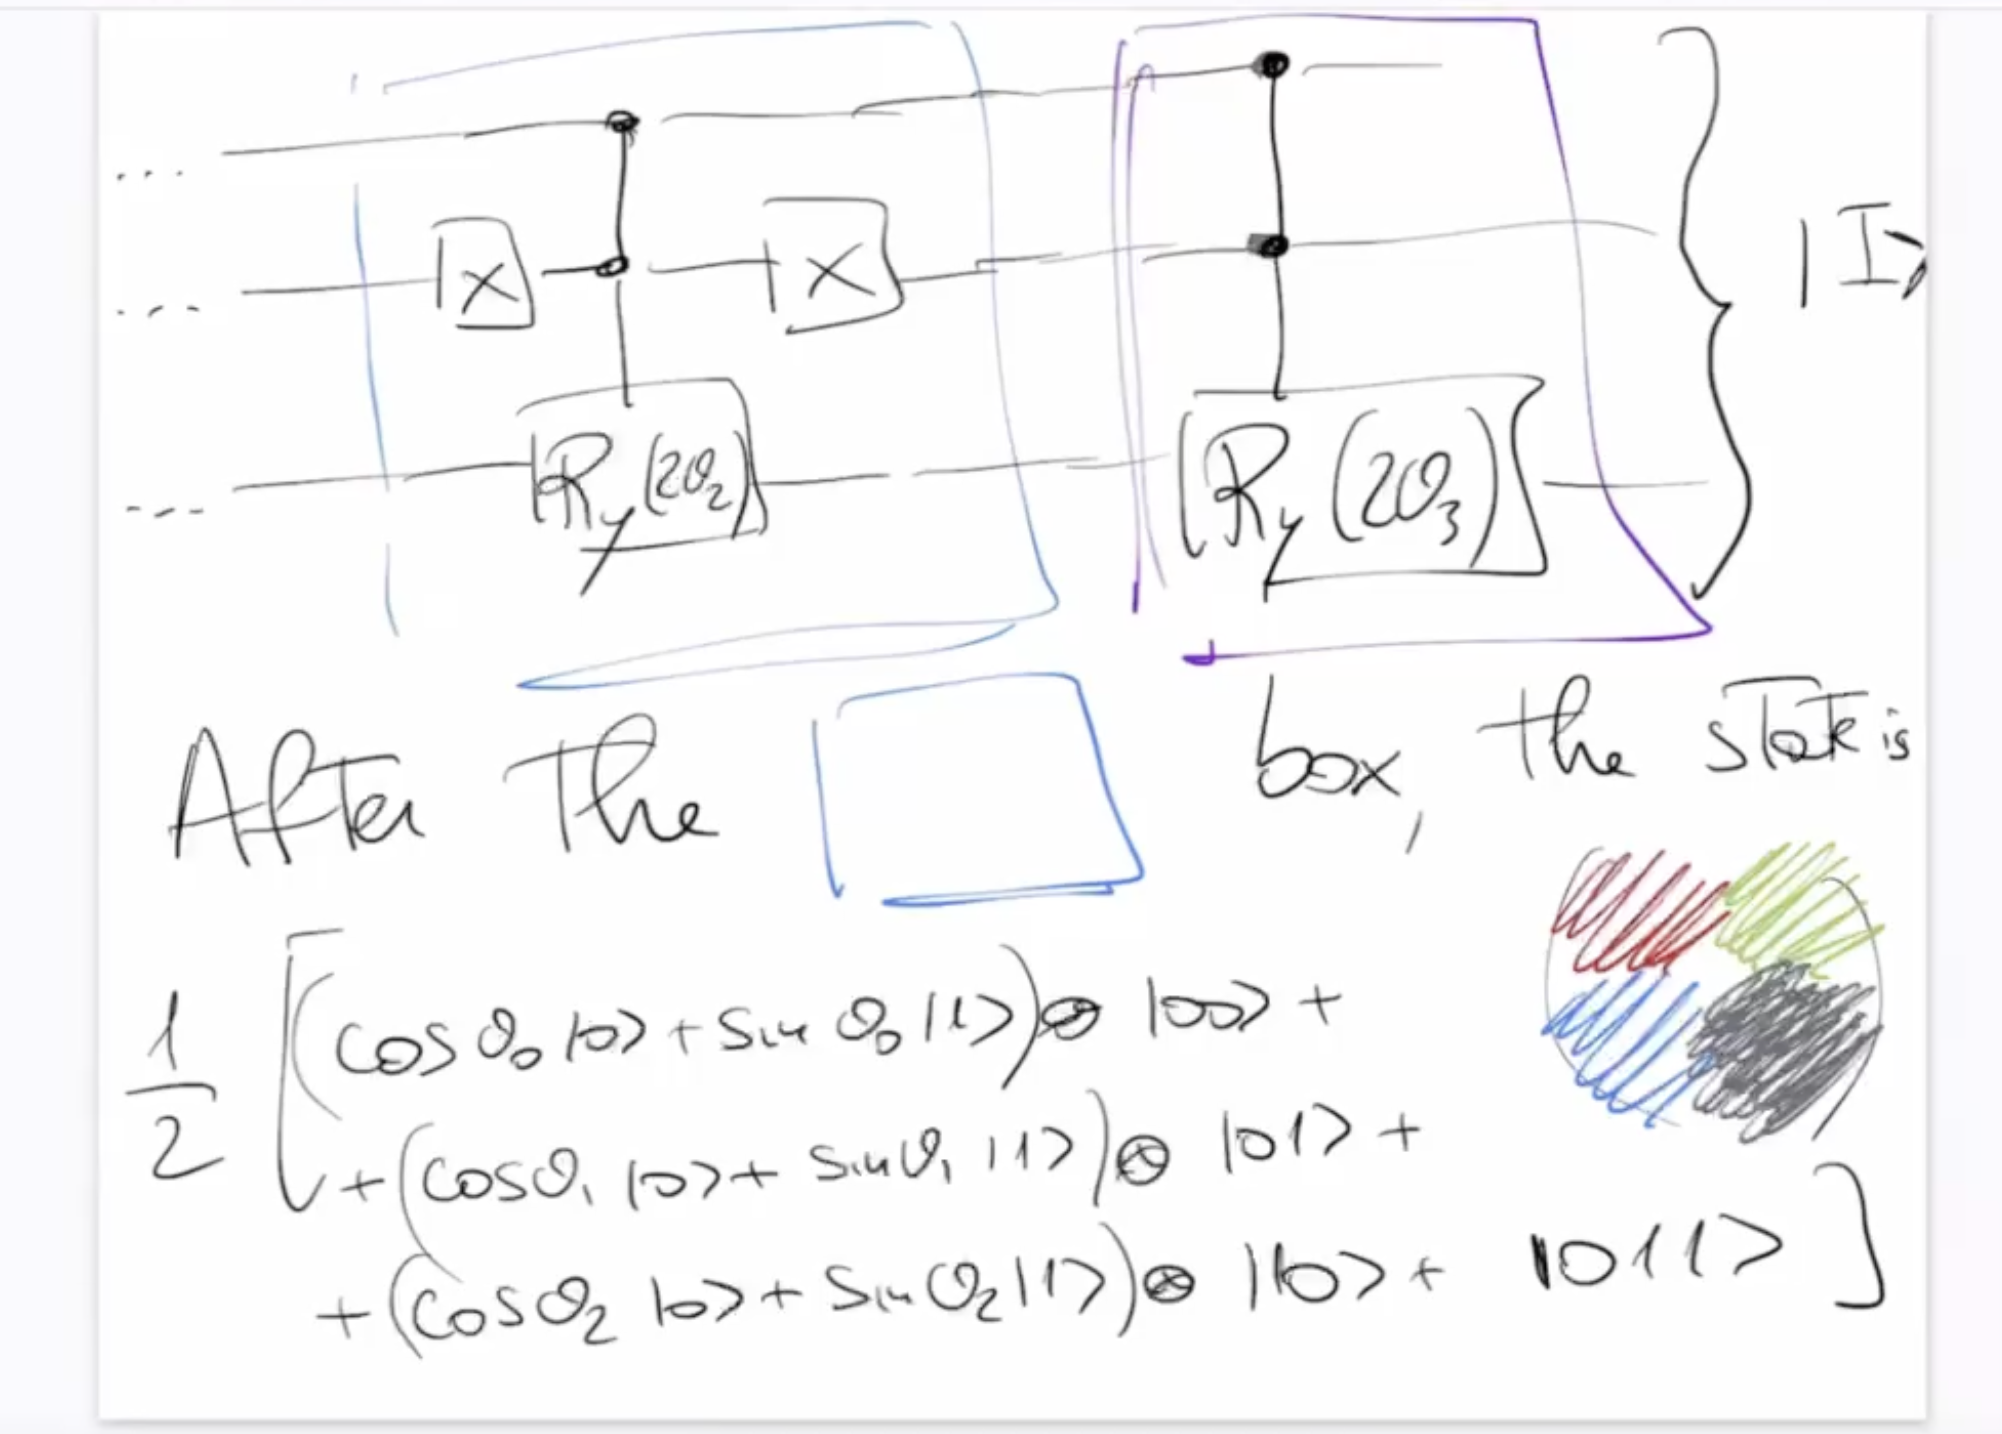 ...
X
X
|I⟩
...
R_y(2θ₂)
R_y(2θ₃)
...
After the box, the state is
1/2 [(cos θ₀ |0⟩ + sin θ₀ |1⟩) ⊗ |00⟩ +
+ (cos θ₁ |0⟩ + sin θ₁ |1⟩) ⊗ |01⟩ +
+ (cos θ₂ |0⟩ + sin θ₂ |1⟩) ⊗ |10⟩ + |011⟩]